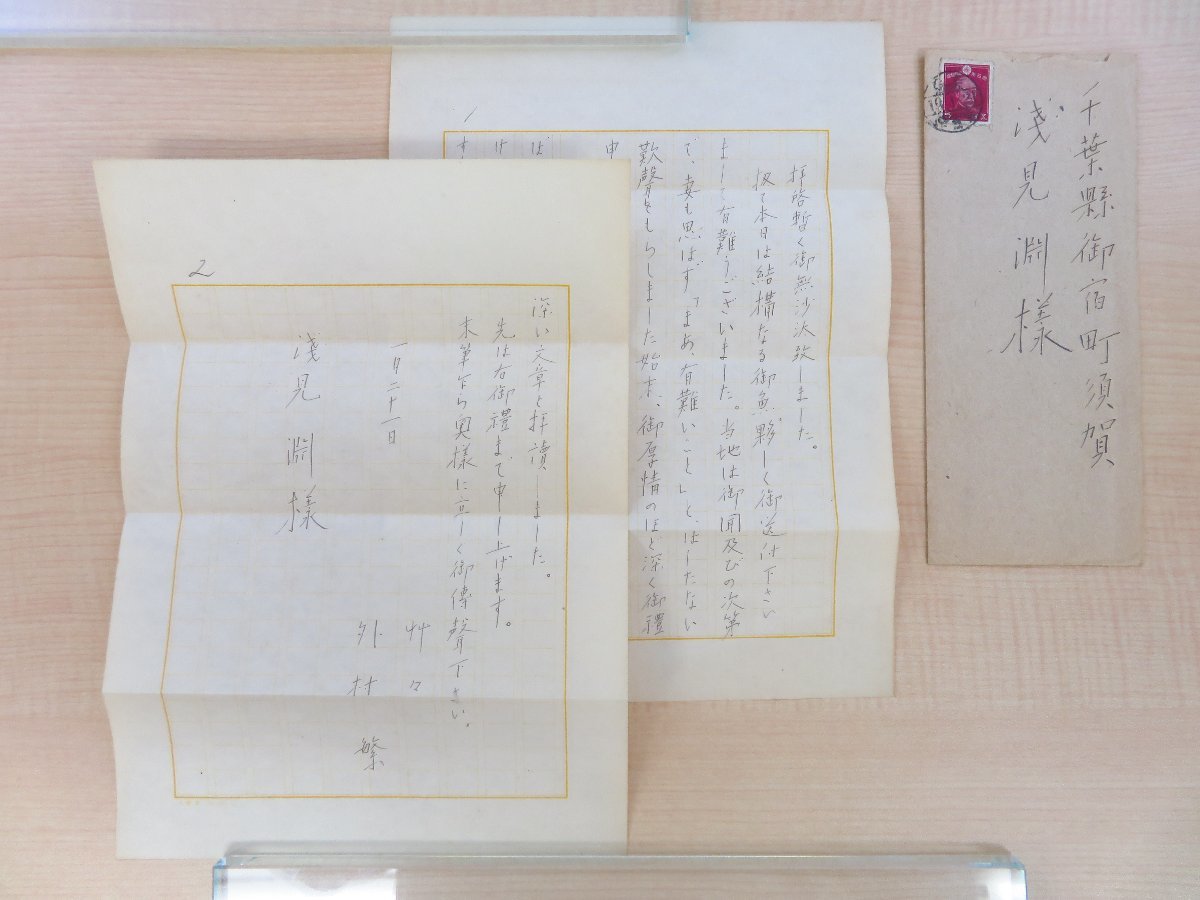 千葉縣御宿町須賀
淺見淵樣
拝啓暫く御無沙汰致しました。
扨て本日は結構なる御魚夥しく御送付下さい
まして有難うございました。当地は御聞及びの次第
で、妻も思はず「まあ、有難いこと」と、はしたない
歎聲をもらしました始末、御厚情のほど深く御禮
申
ば
け
す
2
深い文章と拝讀しました。
先は右御禮まで申し上げます。
末筆乍ら奥樣に宜しく御傳聲下さい。
艸々
一月二十一日
外村 繁
淺見 淵 樣